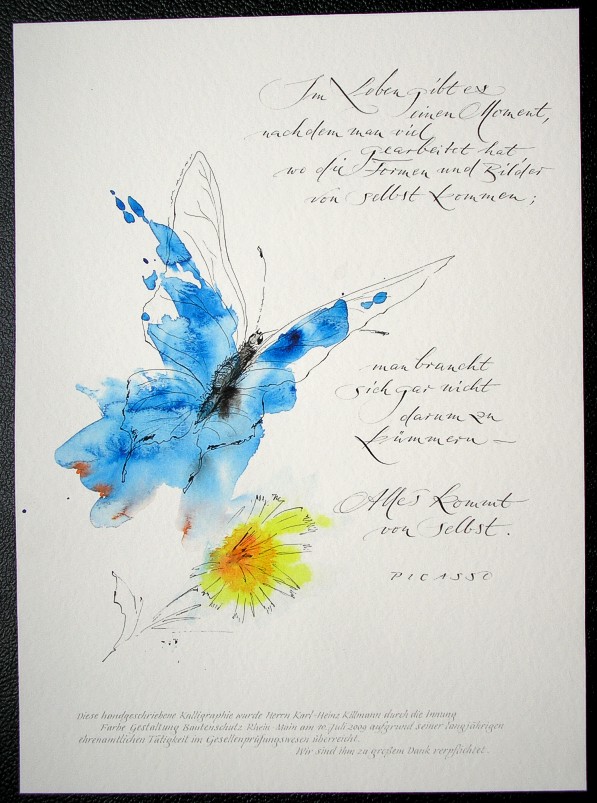 Im Leben gibt es
einen Moment,
nachdem man viel
gearbeitet hat
wo die Formen und Bilder
von selbst kommen;
man braucht
sich gar nicht
darum zu
kümmern –
Alles kommt
von selbst.
PICASSO
Diese handgeschriebene Kalligraphie wurde Herrn Karl-Heinz Killmann durch die Innung
Farbe Gestaltung Bautenschutz Rhein-Main am 10. Juli 2009 aufgrund seiner langjährigen
ehrenamtlichen Tätigkeit im Gesellenprüfungswesen überreicht.
Wir sind ihm zu großem Dank verpflichtet.